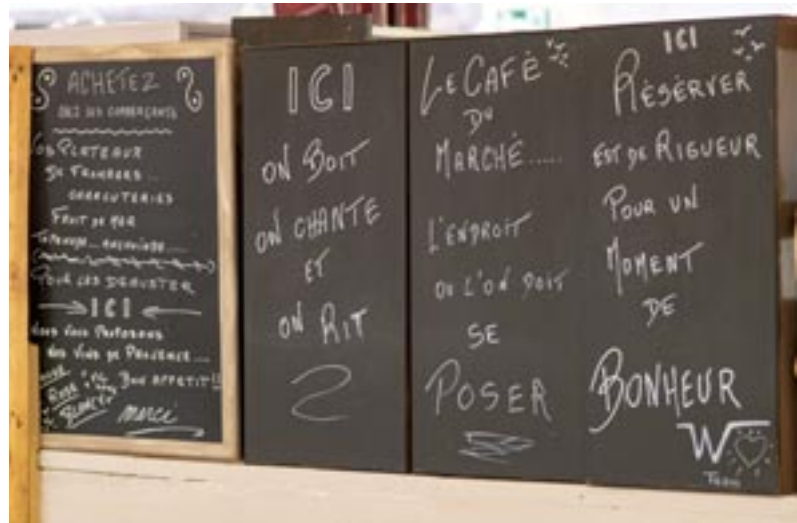 ACHETEZ
CHEZ LES COMMERÇANTS
VOS PLATEAUX
DE FROMAGES...
CHARCUTERIES
FRUIT DE MER
POUR LES DEGUSTER
ICI
NOUS VOUS PROPOSONS
NOS VINS DE PROVENCE....
ROSÉ
BLANC
BON APPETIT!!
merci
ICI
ON BOIT
ON CHANTE
ET
ON RIT
LE CAFÉ
DU
MARCHÉ.....
L'ENDROIT
OU L'ON DOIT
SE
POSER
ICI
RÉSERVER
EST DE RIGUEUR
POUR UN
MOMENT
DE
BONHEUR
W